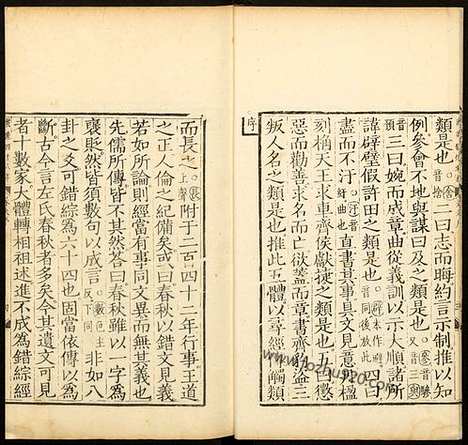 類是也○舍音捨二曰志而晦約言示制推以知
例參會不地與謀曰及之類是也○參音驂又音三與
音預三曰婉而成章曲從義訓以示大順諸所
諱辟璧假許田之類是也○辟本作避音同後放此四曰
盡而不汙○汙音紆曲也直書其事具文見意丹楹
刻桷天王求車齊侯獻捷之類是也五曰懲
惡而勸善求名而亡欲蓋而章書齊豹盜三
叛人名之類是也推此五體以尋經傳觸類
序
而長之○長上聲附于二百四十二年行事王道
之正人倫之紀備矣或曰春秋以錯文見義
若如所論則經當有事同文異而無其義也
先儒所傳皆不其然荅曰春秋雖以一字為
襃貶然皆須數句以成言○數色主反下同非如八
卦之爻可錯綜為六十四也固當依傳以為
斷古今言左氏春秋者多矣今其遺文可見
者十數家大體轉相祖述進不成為錯綜經